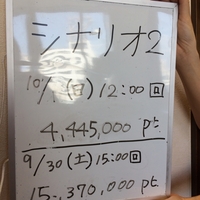 シナリオ2
10/1(日)12:00回
4,445,000 pt
9/30(土)15:00回
15,370,000 pt